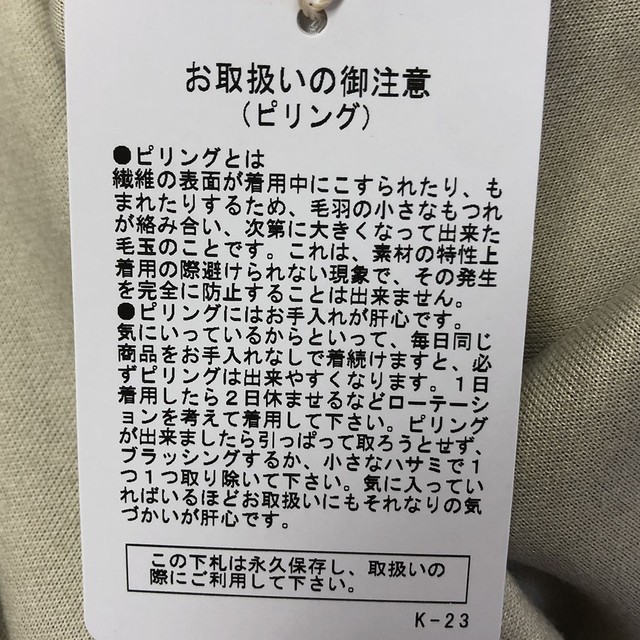 お取扱いの御注意
(ピリング)
●ピリングとは
繊維の表面が着用中にこすられたり、も
まれたりするため、毛羽の小さなもつれ
が絡み合い、次第に大きくなって出来た
毛玉のことです。これは、素材の特性上
着用の際避けられない現象で、その発生
を完全に防止することは出来ません。
●ピリングにはお手入れが肝心です。
気にいっているからといって、毎日同じ
商品をお手入れなしで着続けますと、必
ずピリングは出来やすくなります。1日
着用したら2日休ませるなどローテーシ
ョンを考えて着用して下さい。ピリング
が出来ましたら引っぱって取ろうとせず、
ブラッシングするか、小さなハサミで1
つ1つ取り除いて下さい。気に入ってい
ればいるほどお取扱いにもそれなりの気
づかいが肝心です。
この下札は永久保存し、取扱いの
際にご利用して下さい。
K-23